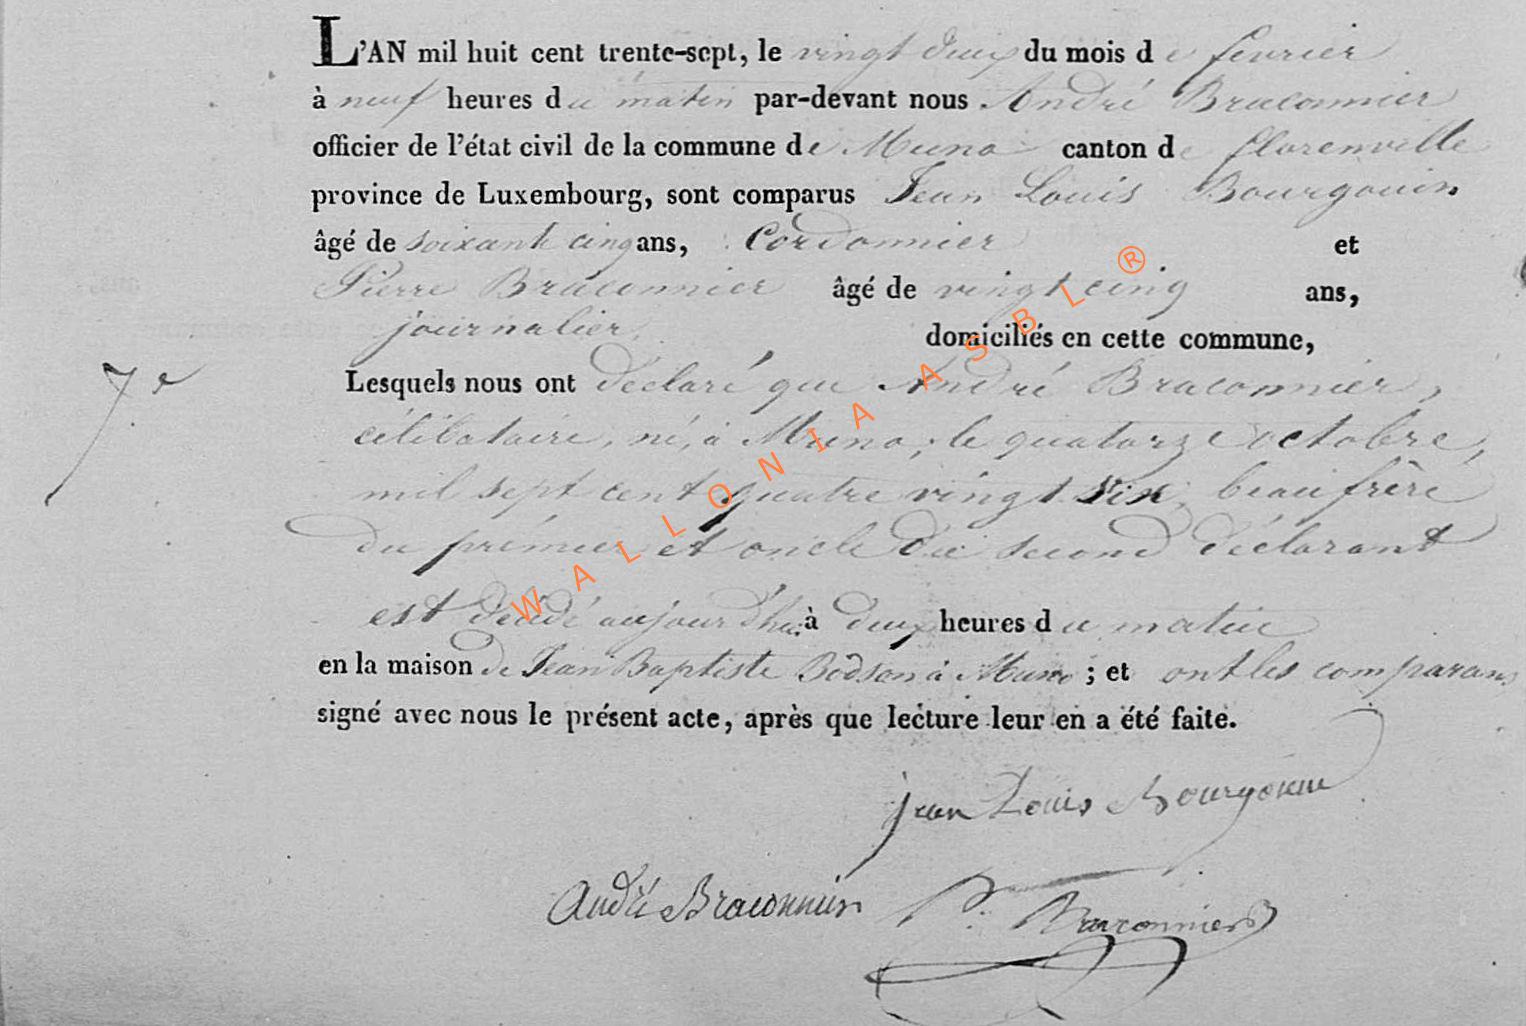 L'AN mil huit cent trente-sept, le vingt deux du mois de février
à neuf heures du matin par-devant nous André Braconnier
officier de l'état civil de la commune de Muno canton de florenville
province de Luxembourg, sont comparus Jean Louis Bourgouin
âgé de soixante cinq ans, Cordonnier et
Pierre Braconnier âgé de vingt cinq ans,
journalier, domiciliés en cette commune,
7e Lesquels nous ont déclaré que André Braconnier,
célibataire, né, à Muno, le quatorze octobre,
mil sept cent quatre vingt six, beaufrère
du prémier et oncle du second déclarant
est décédé aujourd'hui à deux heures du matin
en la maison de Jean Baptiste Bodson à Muno ; et ont les comparans
signé avec nous le présent acte, après que lecture leur en a été faite.
jean Louis Bourgouin
André Braconnier P. Braconnier
WALLONIA ASBL ®